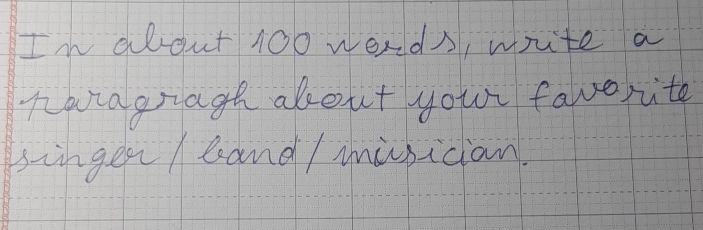 In about 100 words, write a
paragragh about your favorite
singer / band / musician.